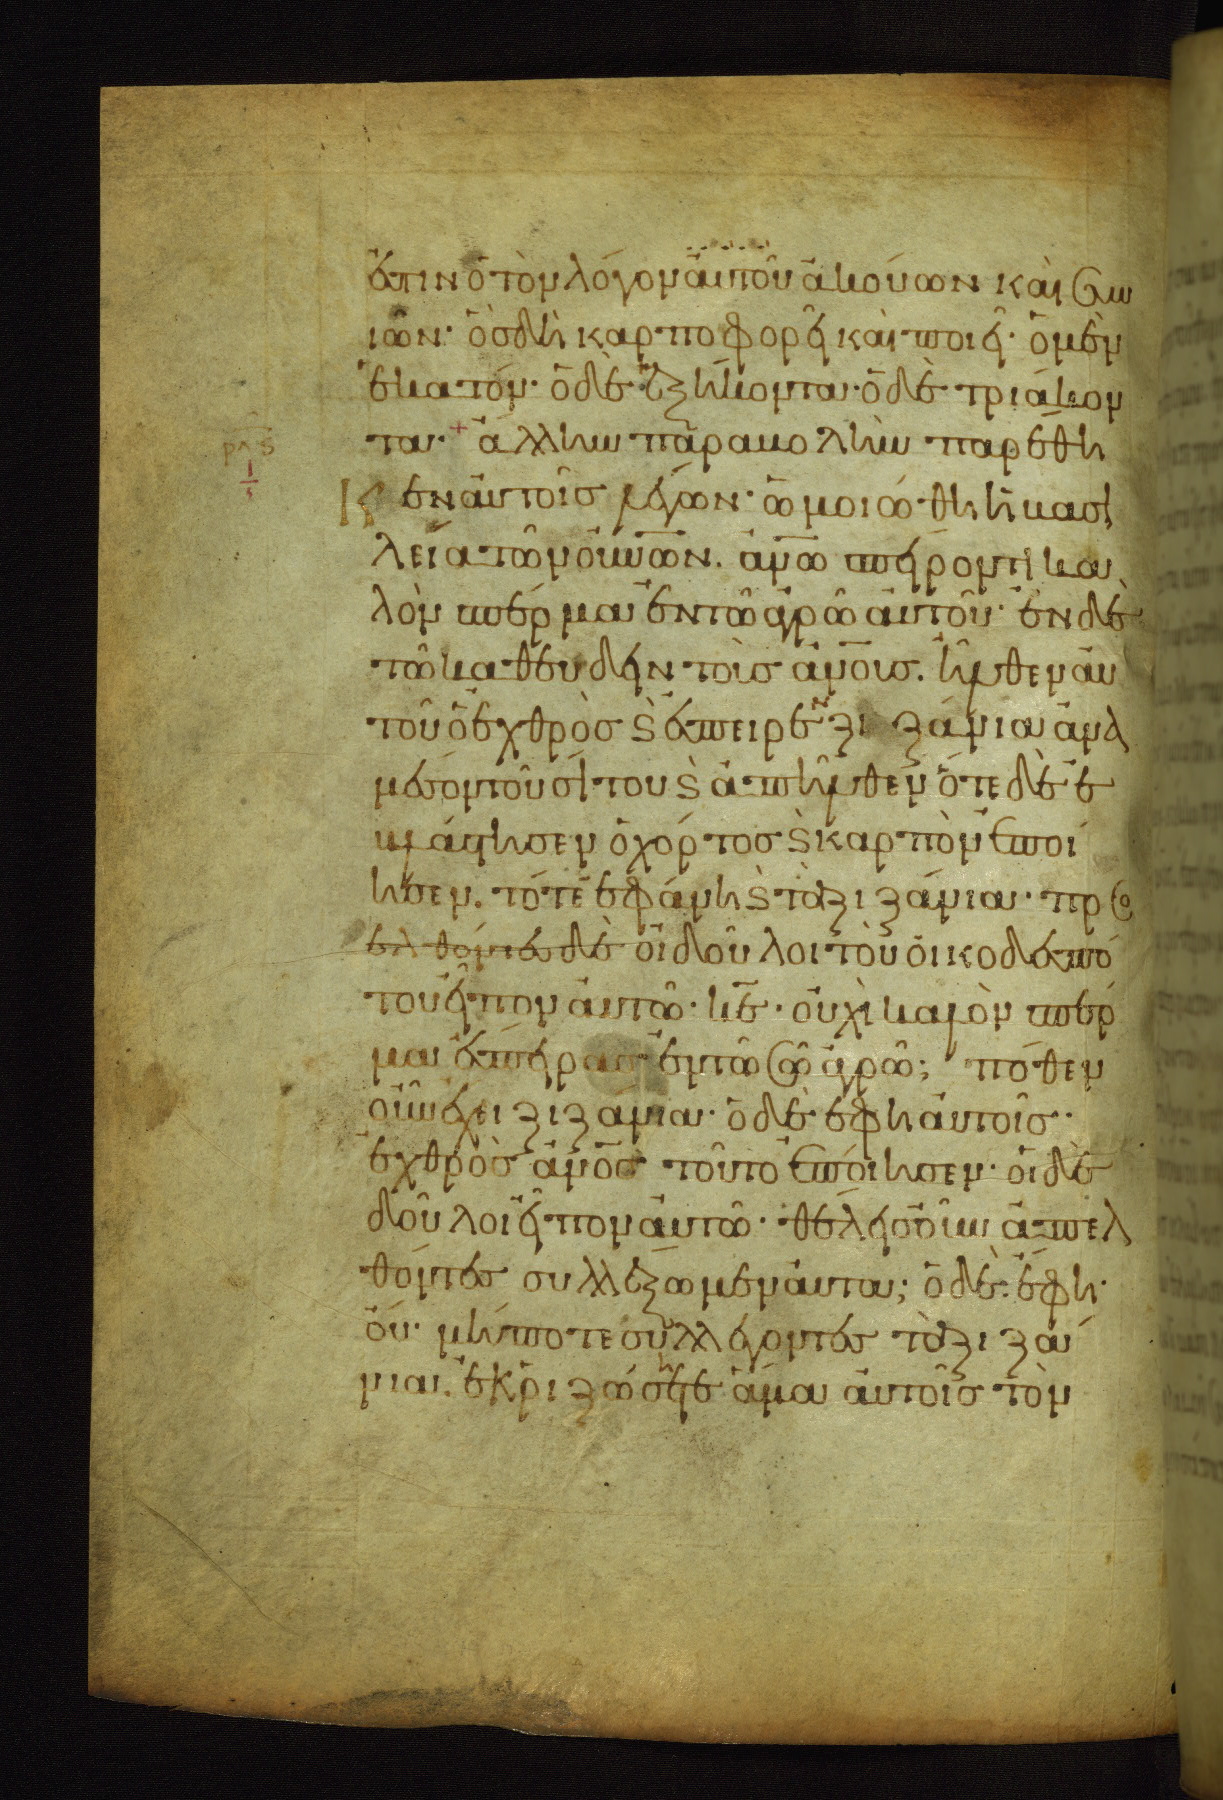 ἐστιν ὁ τὸν λόγον αὐτοῦ ἀκούων καὶ συν
ιῶν· ὃς δὴ καρποφορεῖ καὶ ποιεῖ· ὁ μὲν
ἑκατόν· ὁ δὲ ἑξήκοντα· ὁ δὲ τριάκον
τα· + ἄλλην παραβολὴν παρέθη
κεν αὐτοῖς λέγων· ὡμοιώθη ἡ βασι
λεία τῶν οὐνῶν. ἀνω σπείροντι κα
λὸν σπέρμα ἐν τῶ ἀγρῶ αὐτοῦ· ἐν δὲ
τῶ καθεύδειν τοὺς ἀνους. ἦλθεν αὐ
τοῦ ὁ ἐχθρὸς ϗ ἔσπειρεν ζιζάνια ἀνὰ
μέσον τοῦ σίτου ϗ ἀπῆλθεν ὅτε δὲ ἐ
βλάστησεν ὁ χόρτος ϗ καρπὸν ἐποί
ησεν. τότε ἐφάνη ϗ τὰ ζιζάνια· προσ
ελθόντες δὲ οἱ δοῦλοι τοῦ οἰκοδεσπό
του εἶπον αὐτῶ· κε· οὐχὶ καλὸν σπέρ
μα ἔσπειρας ἐν τῶ σῶ ἀγρῶ; πόθεν
οὖν ἔχει ζιζάνια· ὁ δὲ ἔφη αὐτοῖς·
ἐχθρὸς ἀνος τοῦτο ἐποίησεν· οἱ δὲ
δοῦλοι εἶπον αὐτῶ· θέλεις οὖν ἀπελ
θόντες συλλέξωμεν αὐτα; ὁ δὲ ἔφη·
οὔ· μήποτε συλλέγοντες τὰ ζιζά
νια. ἐκριζώσητε ἅμα αὐτοῖς τὸν